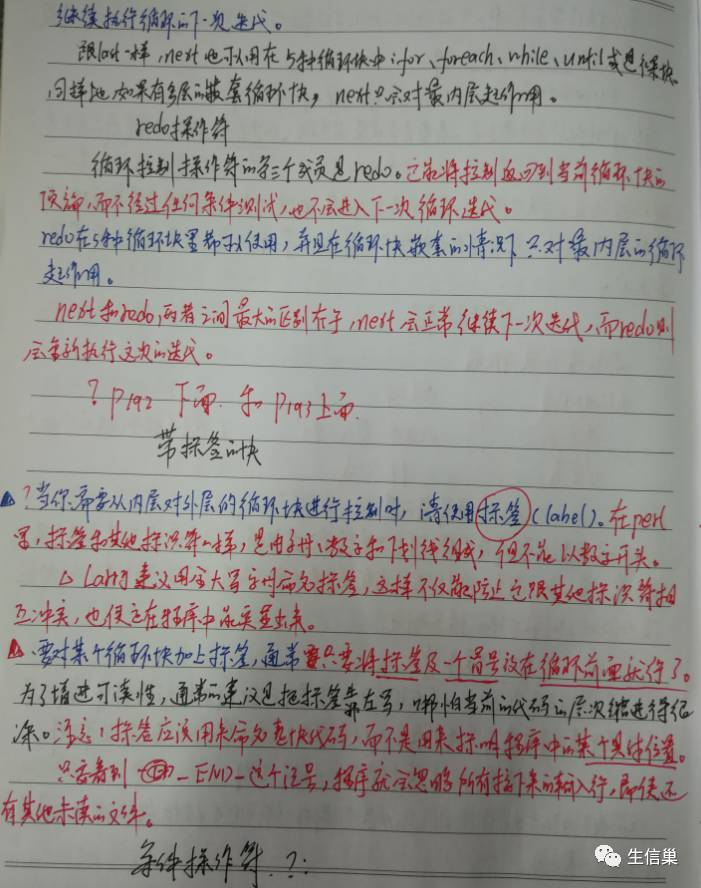 继续执行循环的下一次迭代。
跟last一样,next也可以用在5种循环块中:for、foreach、while、until或是裸块。
同样地,如果有多层的嵌套循环块,next只会对最内层起作用。
redo操作符
循环控制操作符的第三个成员是redo。它能将控制返回到当前循环块的
顶端,而不经过任何条件测试,也不会进入下一次循环迭代。
redo在5种循环块里都可以使用,并且在循环块嵌套的情况下只对最内层的循环
起作用。
next和redo,两者之间最大的区别在于,next会正常继续下一次迭代,而redo则
会重新执行这次的迭代。
? P192 下面 和 P193上面.
带标签的块
?当你需要从内层对外层的循环块进行控制时,请使用标签(label)。在perl
里,标签和其他标识符一样,是由字母、数字和下划线组成,但不能以数字开头。
△ Larry建议用全大写字母命名标签,这样不仅能防止它跟其他标识符相
互冲突,也使它在程序中能突显出来。
要对某个循环块加上标签,通常只要将标签及一个冒号放在循环前面就行了。
为了增进可读性,通常的建议是把标签靠左写,哪怕当前的代码的层次缩进得很
深。注意!标签应该用来命名整块代码,而不是用来标明程序中的某个具体位置。
只要看到 _END_这个记号,程序就会忽略所有接下来的输入行,即使还
有其他未读的文件。
条件操作符.?:
生信巢